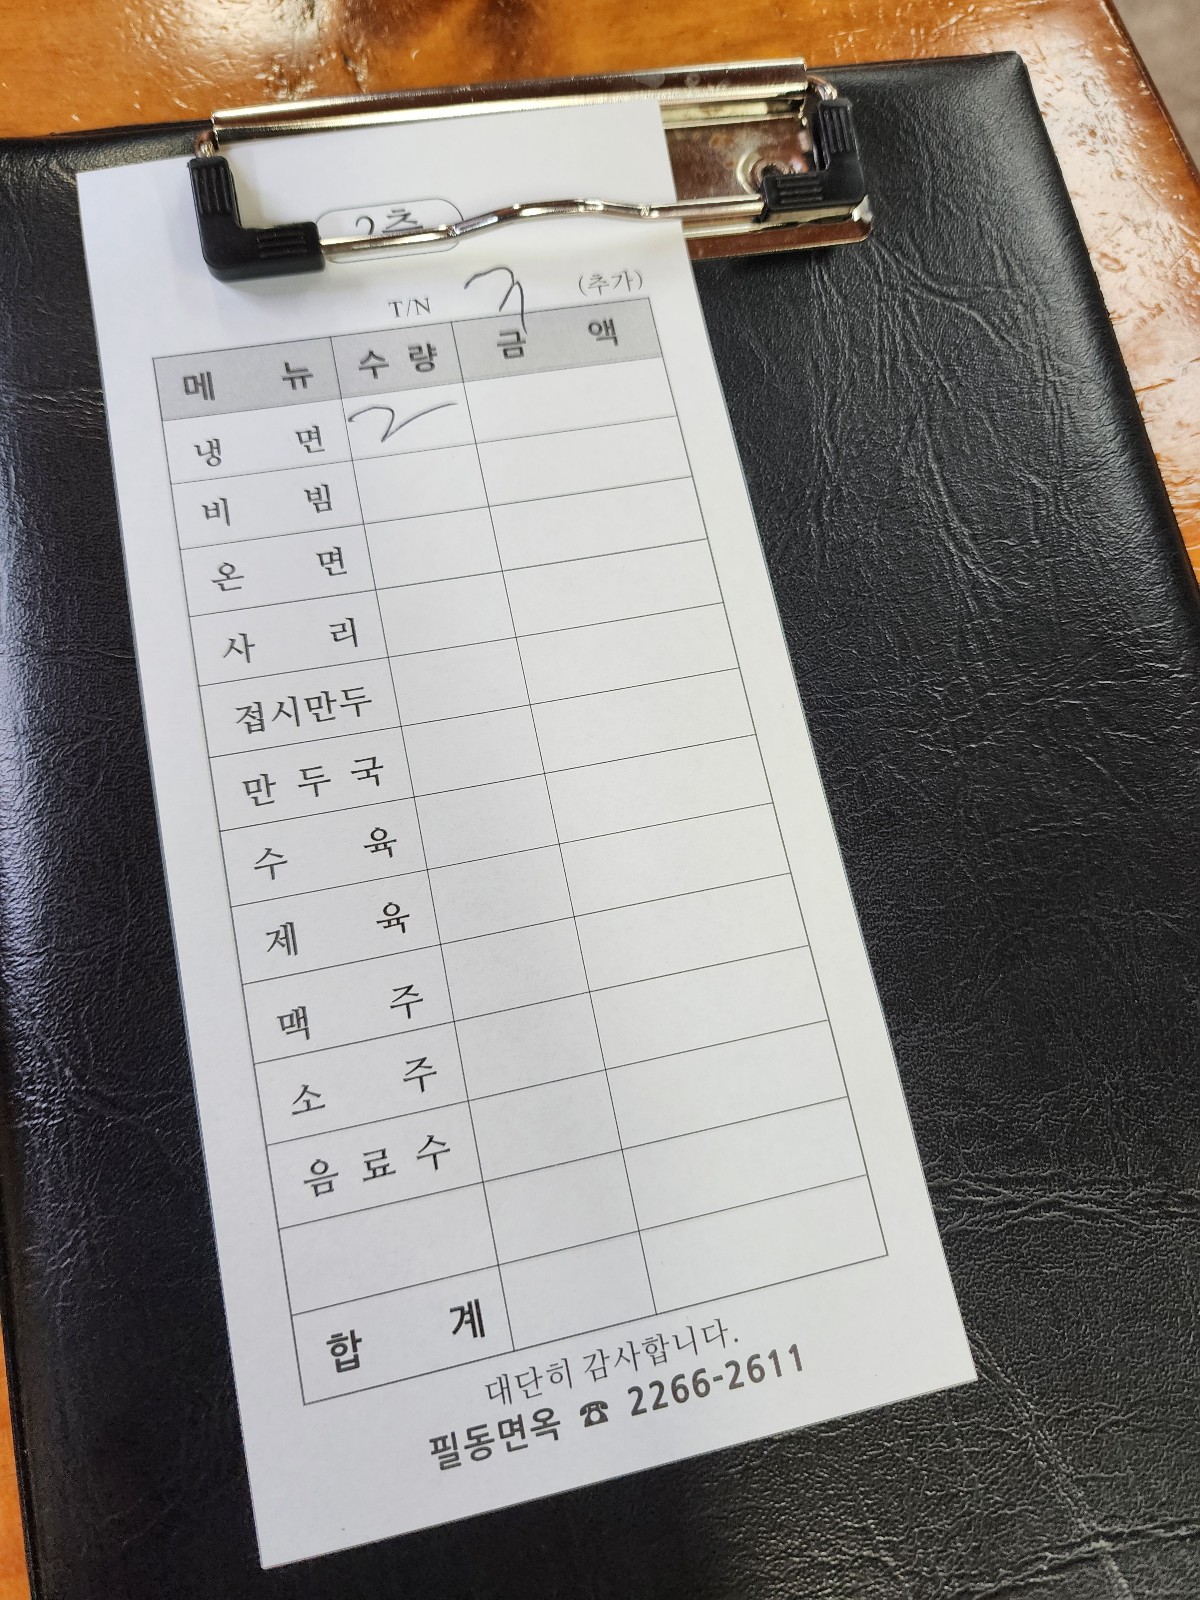 2층
T/N 7 (추가)
메뉴 수량 금액
냉면 2
비빔
온면
사리
접시만두
만두국
수육
제육
맥주
소주
음료수
합계
대단히 감사합니다.
필동면옥 ☎ 2266-2611